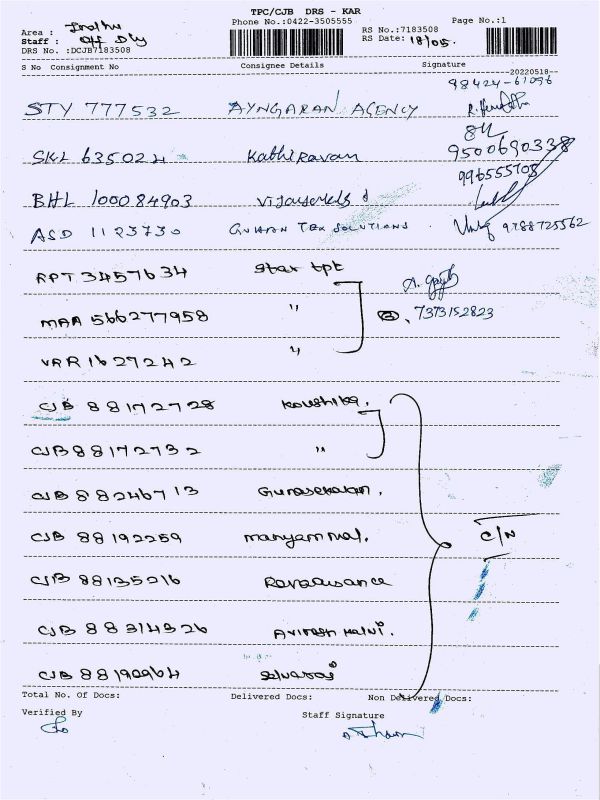 TPC/CJB DRS - KAR
Phone No.:0422-3505555 Page No.:1
Area : Indhu
Staff : Off Dly
DRS No. :DCJB7183508
RS No.:7183508
RS Date: 18/05.
S No Consignment No Consignee Details Signature
20220518
98424-61096
STY 777532 AYNGARAN AGENCY
SKL 635024 Kathiravan 9500690338
996555708
BHL 100084903
ASD 1123730 GUHAN TEX SOLUTIONS. 9788725562
RPT 3457634 Star tpt
MAA 566277958 " 7373152823
VRR 1627242 "
CJB 88172728 Koushika.
CJB 88172732 "
CJB 88246713 Gunasekaran.
CJB 88192259 Mariyammal. C/N
CJB 88135216
CJB 88314326
CJB 88190964 Selvaraj
Total No. Of Docs: Delivered Docs: Non Delivered Docs:
Verified By Staff Signature